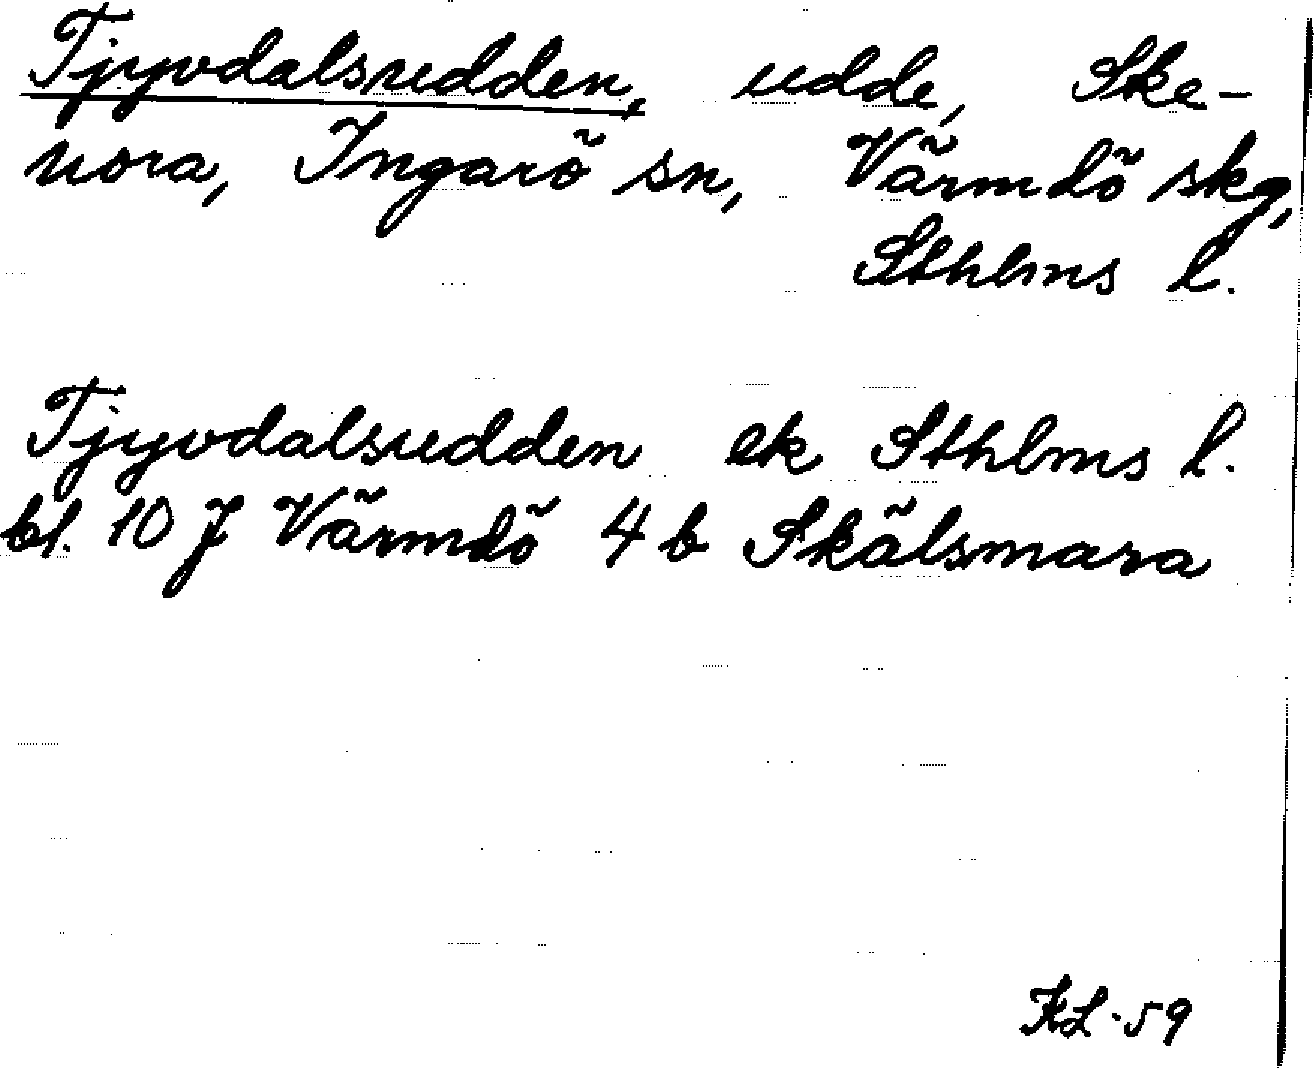 Tjyvdalsudden, udde, Ske-
nora, Ingarö sn, Värmdö skg,
Sthlms l.
Tjyvdalsudden ek Sthlms l.
bl. 10 J Värmdö 4 b Skälsmara
KL-59